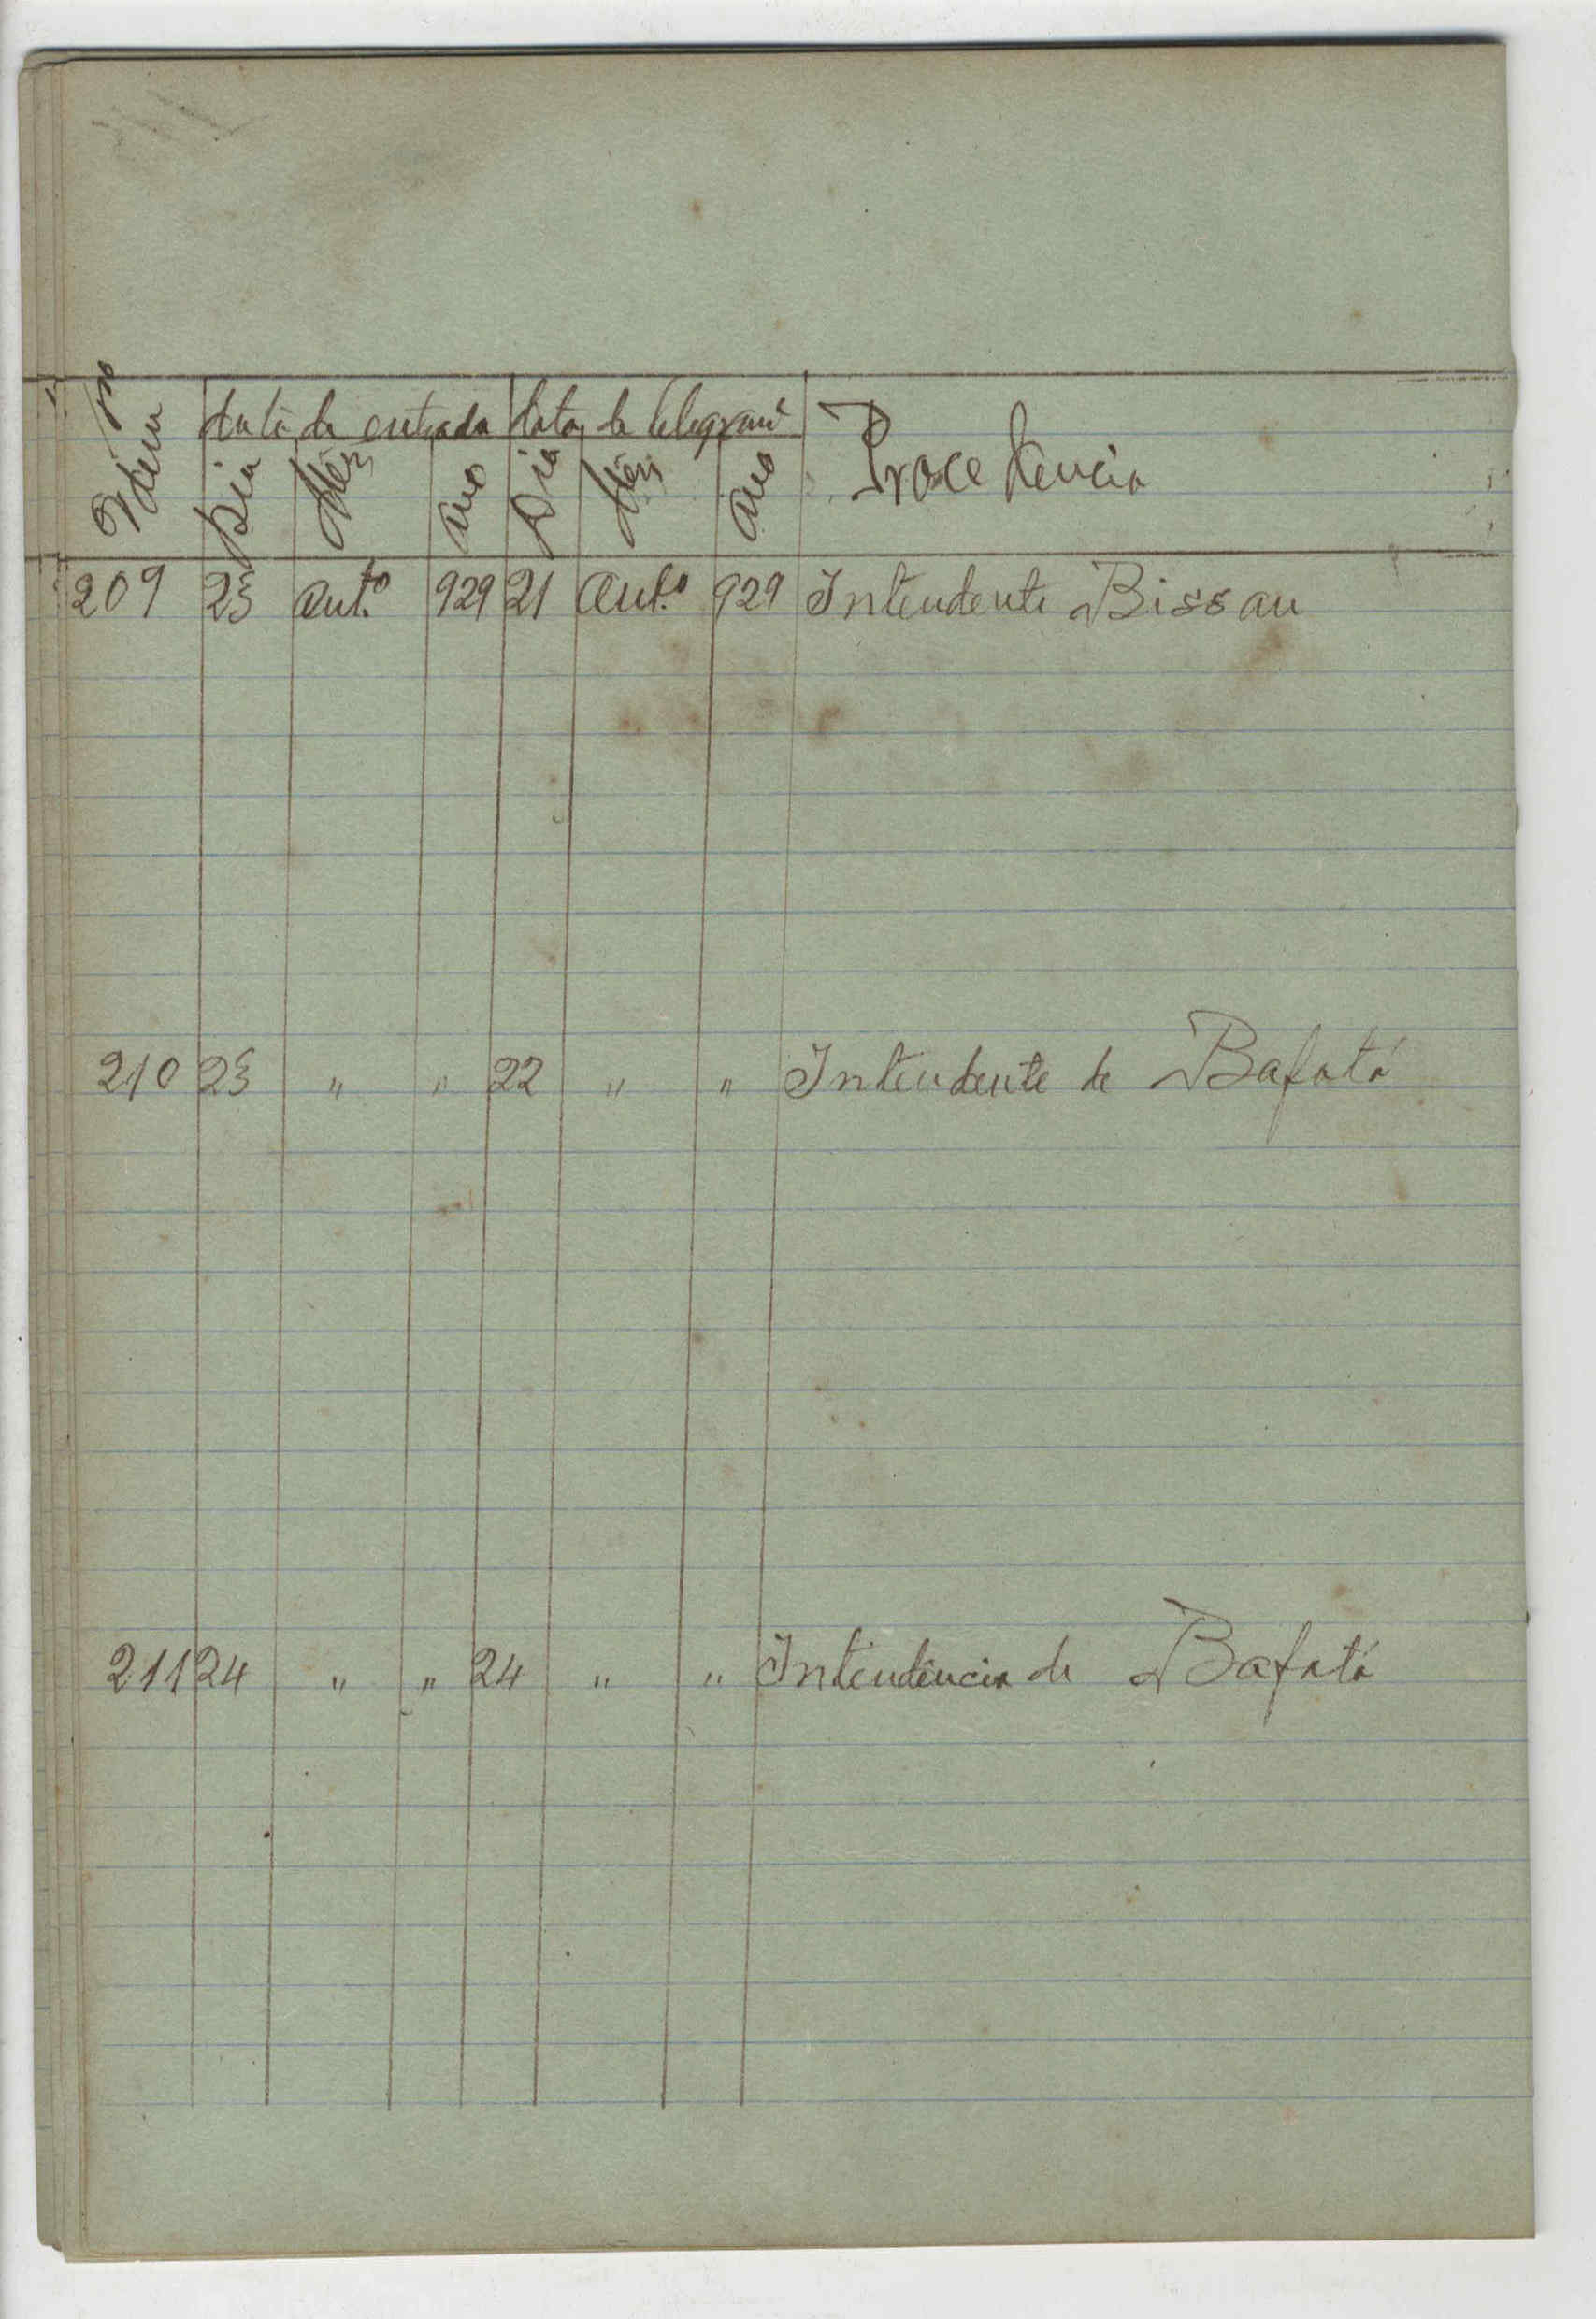 data de entrada data de telegramª
Dia Mês ano Dia Mês ano Procedencia
209 23 Out.º 929 21 Out.º 929 Intendente Bissau
210 23 " " 22 " " Intendente de Bafatá
211 24 " " 24 " " Intendência de Bafatá